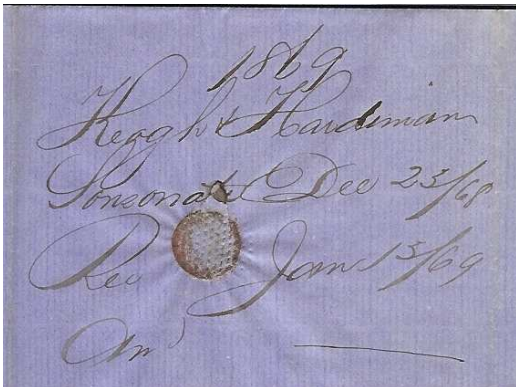 1869
Keogh & Hardiman
Sonsonate Dec 23/68
Rec Jan 13/69
An